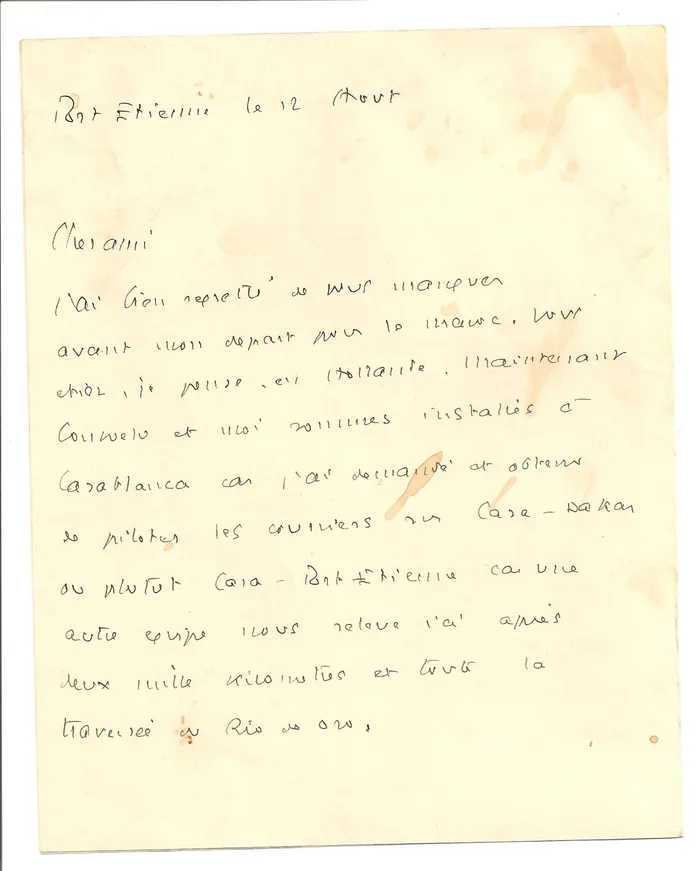 Port Etienne le 12 Aout
Cher ami
J'ai bien regretté de vous manquer
avant mon depart pour le Maroc. Vous
etiez, je pense, en Hollande. Maintenant
Consuelo et moi sommes installés à
Casablanca car j'ai demandé et obtenu
de piloter les courriers sur Casa-Dakar
ou plutot Casa-Port Etienne car une
autre equipe nous releve ici après
deux mille kilomètres et toute la
traversée du Rio de Oro.